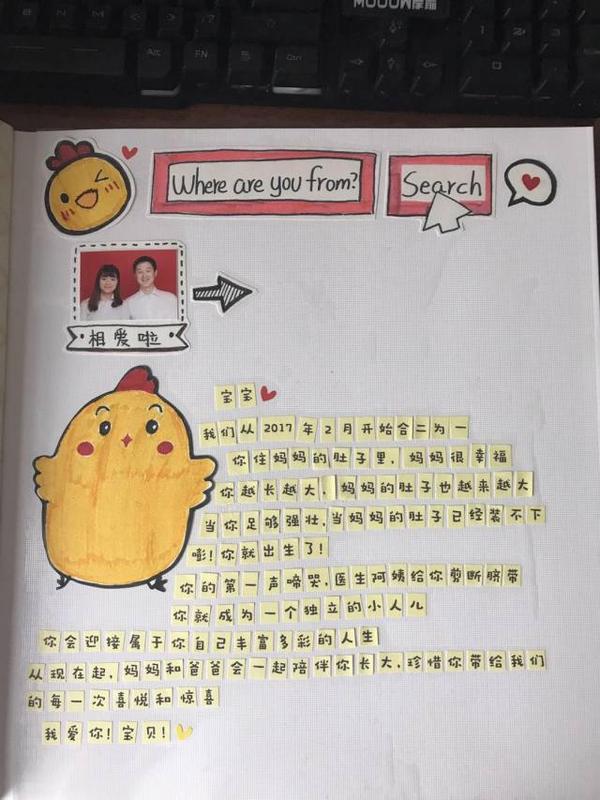 MOOOW摩箱
Alt
FN
Ctrl
Where are you from?
Search
相爱啦
宝宝
我们从2017年2月开始合二为一
你住妈妈的肚子里，妈妈很幸福
你越长越大，妈妈的肚子也越来越大
当你足够强壮，当妈妈的肚子已经装不下
嘭！你就出生了！
你的第一声啼哭，医生阿姨给你剪断脐带
你就成为一个独立的小人儿
你会迎接属于你自己丰富多彩的人生
从现在起，妈妈和爸爸会一起陪伴你长大，珍惜你带给我们
的每一次喜悦和惊喜
我爱你！宝贝！